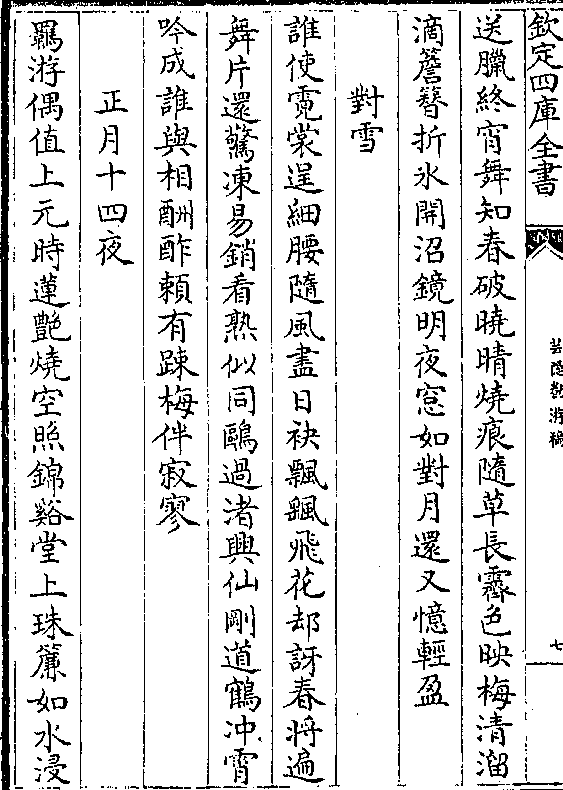 欽定四庫全書
芸隱勌游稿
七
送臘終宵舞知春破曉晴燒痕隨草長霽色映梅清溜
滴簷簪折氷開沼鏡明夜窓如對月還又憶輕盈
對雪
誰使霓裳逞細腰隨風盡日袂飄颻飛花却訝春將遍
舞片還驚凍易銷看熟似同鷗過渚興仙剛道鶴冲霄
吟成誰與相酬酢頼有踈梅伴寂寥
正月十四夜
羈游偶值上元時蓮艶燒空照錦谿堂上珠簾如水浸